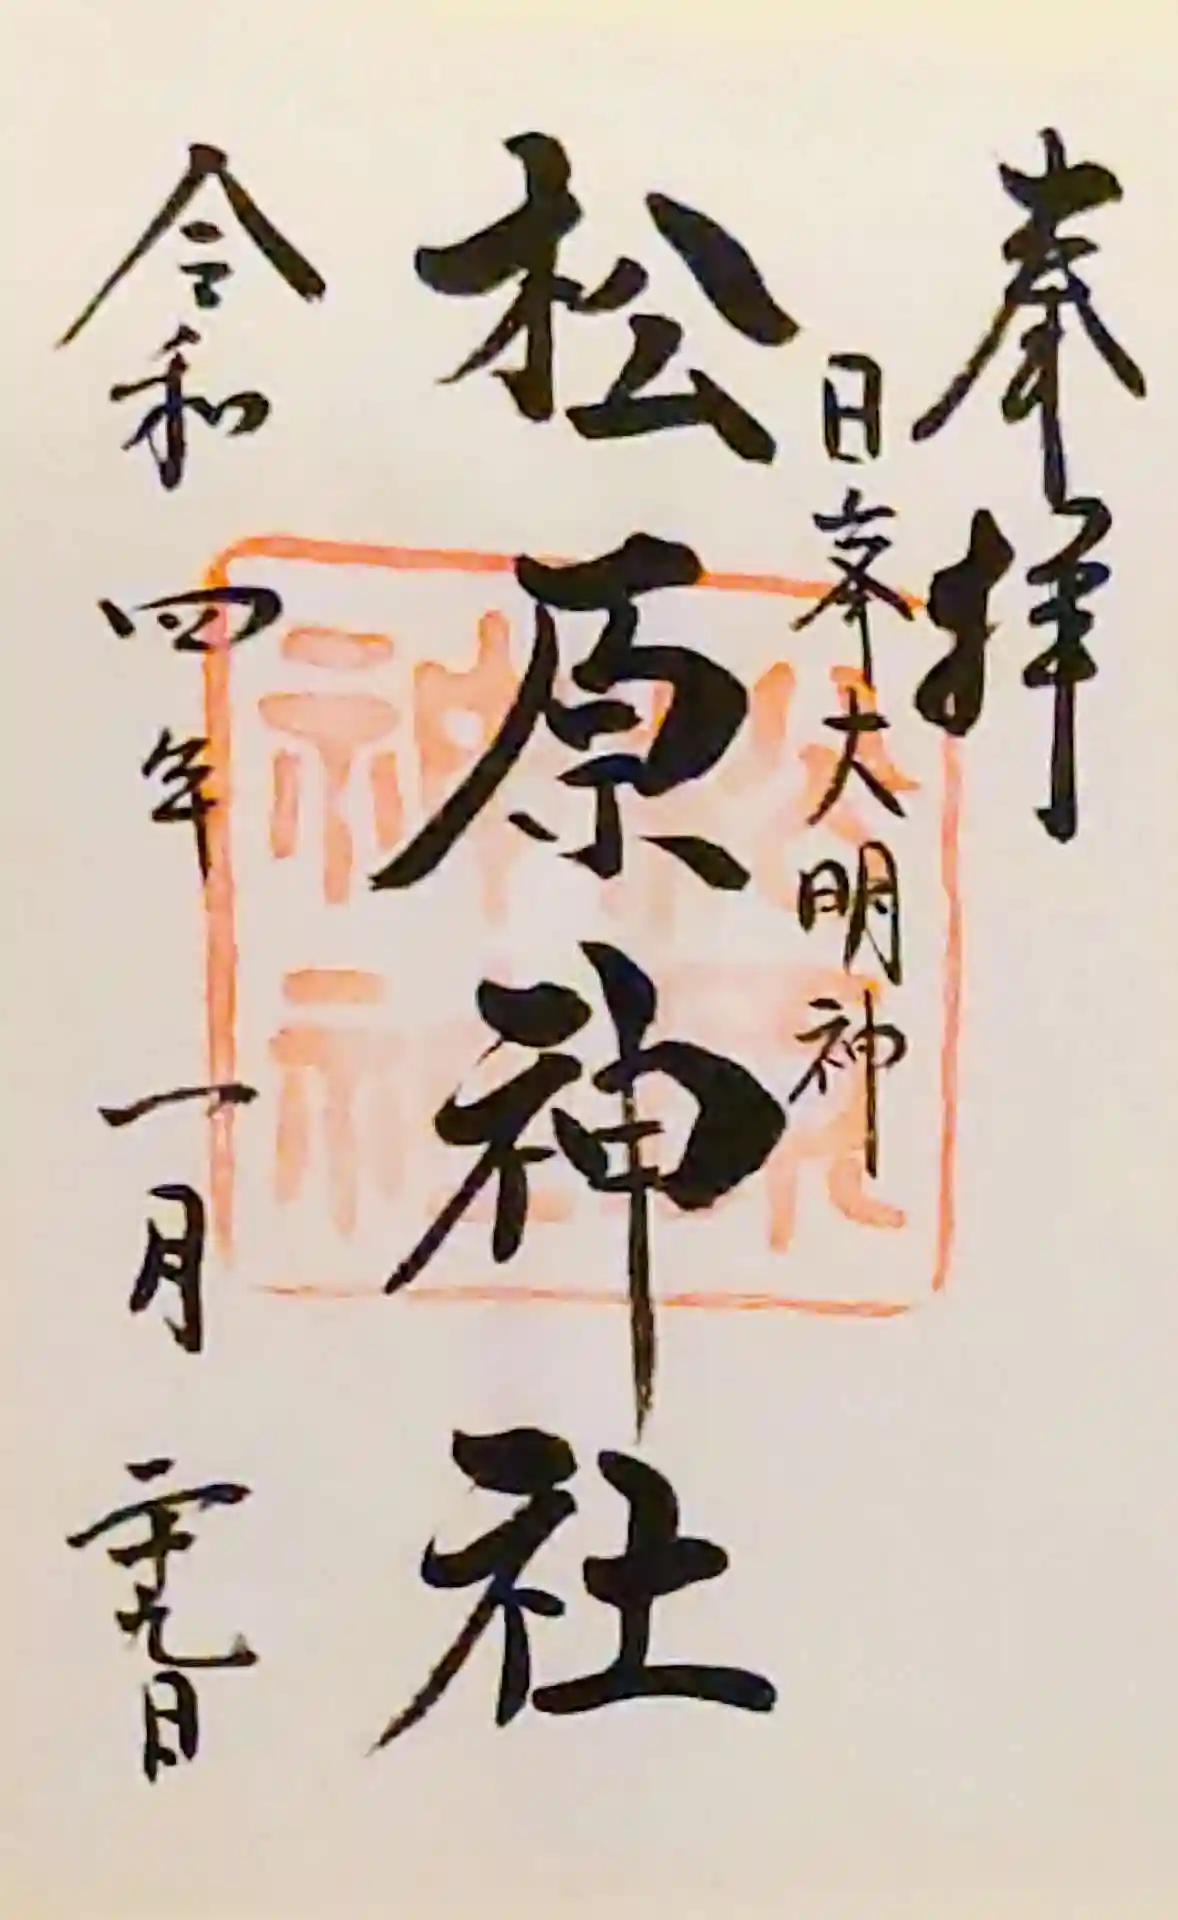 奉拝
日峯大明神
松原神社
令和四年一月二十九日
松原神社